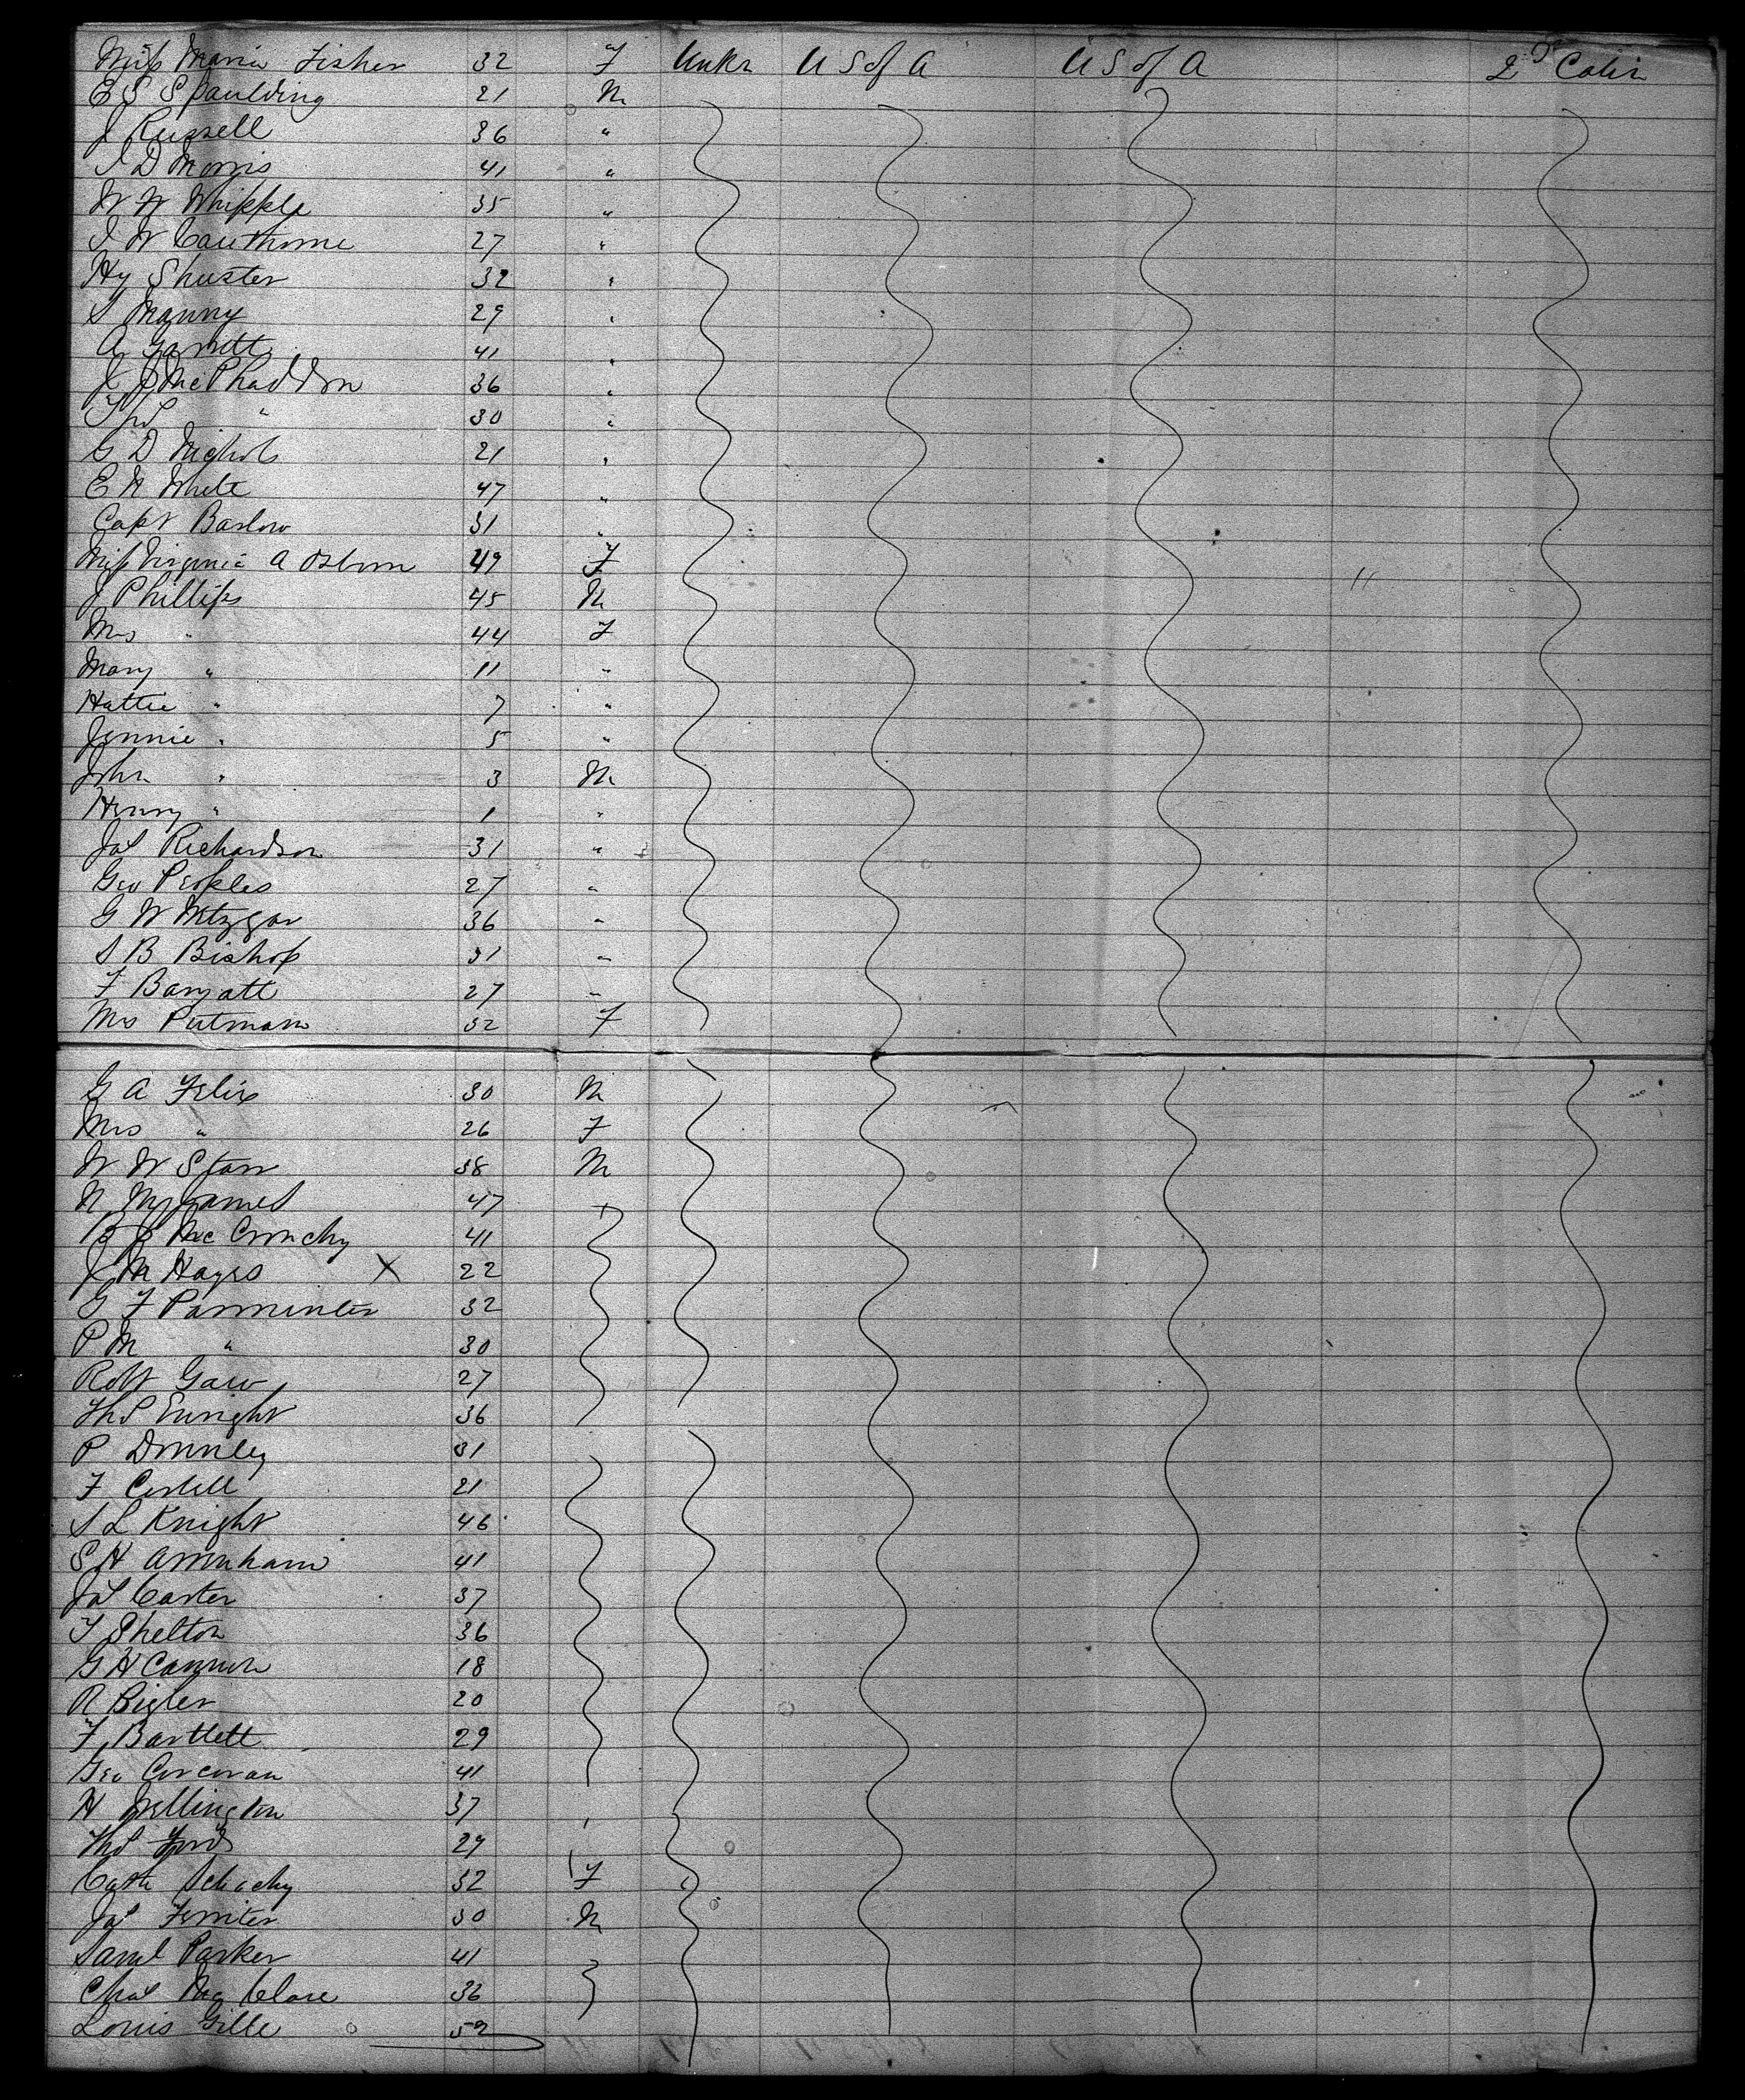 Miss Maria Fisher 32 F Unkn U S of A U S of A 2d Cabin
E S Spaulding 21 M
J Russell 36 "
I D Morris 41 "
W W Whipple 35 "
I W Cawthorne 27 "
Hy Shuster 32 "
S Manny 29 "
A Garritt 41 "
J J McPhaddon 36 "
Ths " 30 "
G D Nichols 21 "
E N White 47 "
Capt Barlow 31 "
Miss Virginia A Osborn 49 F
J Phillips 45 M
Mrs " 44 F
Mary " 11 "
Hattie " 7 "
Jennie " 5 "
John " 3 M
Henry " 1 "
Jas Richardson 31 "
Geo Peoples 27 "
G W Metzgar 36 "
S B Bishop 31 "
F Banyatt 27 "
Mrs Putmam 32 F
G A Felix 30 M
Mrs " 26 F
W W Starr 38 M
N James 47
B J McCronchy 41
J M Hayes X 22
G F Parminter 32
P M " 30
Robt Gaw 27
Ths Enright 36
P Donnley 31
F Costell 21
S L Knight 46
S H 41
Jas Carter 37
T Shelton 36
G H Cannon 18
R Bigler 20
F Bartlett 29
Geo Corcoran 41
H Wellington 37
Ths Ford 29
Cath Schachy 32 F
Jas Ferriter 30 M
Saml Parker 41
Chas Mc Clare 36
Louis Gille 52